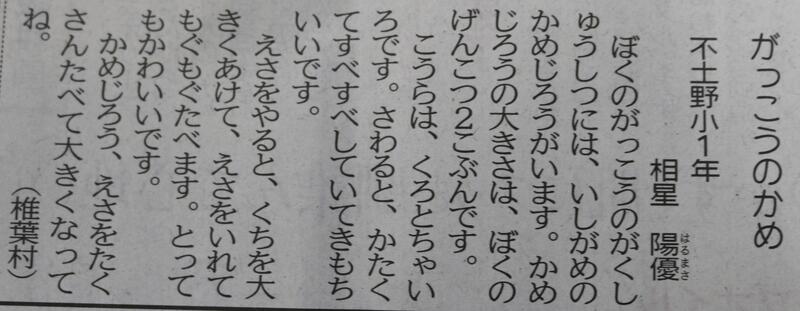 がっこうのかめ
不土野小1年
相星　陽優
はるまさ
ぼくのがっこうのがくし
ゅうしつには、いしがめの
かめじろうがいます。かめ
じろうの大きさは、ぼくの
げんこつ2こぶんです。
こうらは、くろとちゃい
ろです。さわると、かたく
てすべすべしていてきもち
いいです。
えさをやると、くちを大
きくあけて、えさをいれて
もぐもぐたべます。とって
もかわいいです。
かめじろう、えさをたく
さんたべて大きくなって
ね。
（椎葉村）